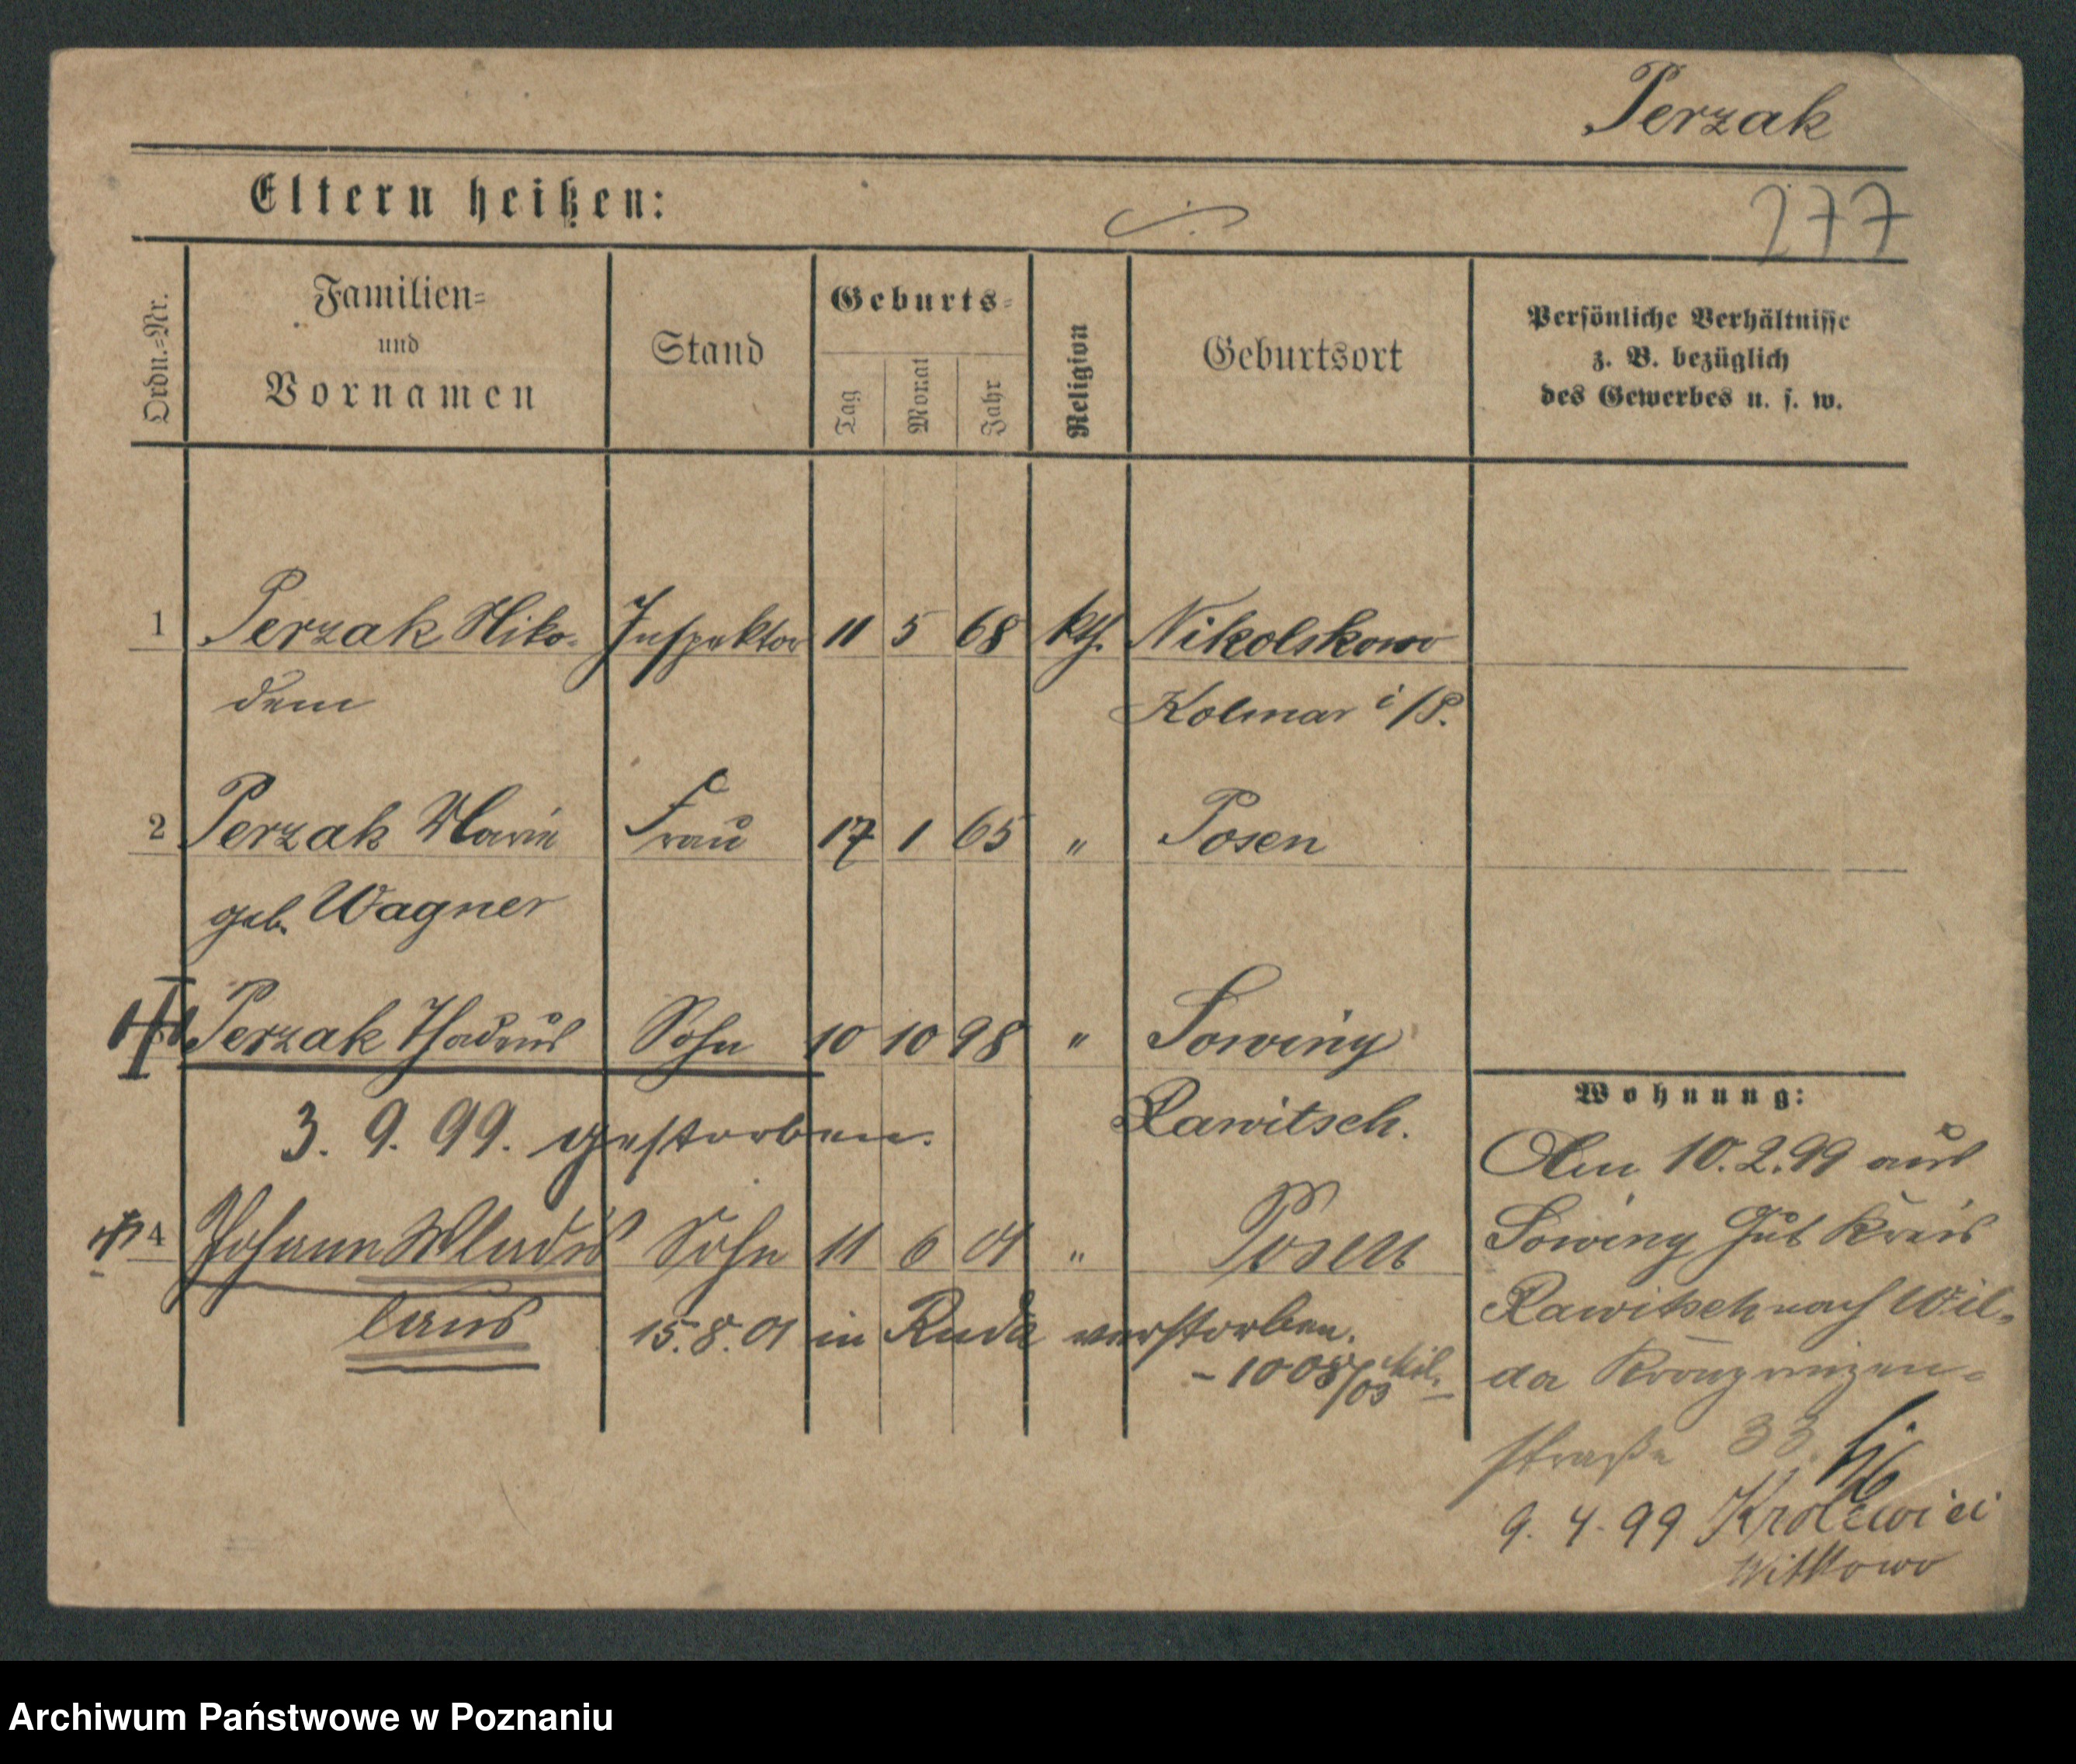 Perzak
Eltern heißen:
277
Ordn.=Nr.
Familien=
und
Vornamen
Stand
Geburts=
Tag
Monat
Jahr
Religion
Geburtsort
Persönliche Verhältnisse
z. B. bezüglich
des Gewerbes u. s. w.
1 Perzak Niko- Inspektor 11 5 68 kth. Nikolskowo
dem Kolmar i/P.
2 Perzak Marie Frau 17 1 65 " Posen
geb. Wagner
Perzak Thadeus Sohn 10 10 98 " Sowiny
Rawitsch.
3. 9. 99. gestorben.
4 Johann Wladis Sohn 11 6 01 " Posen
laus 15.8.01 in Ruda verstorben.
- 1008/03 Mil. -
Wohnung:
Am 10.2.99 aus
Sowiny Gut Kreis
Rawitsch nach Wil-
da Kronprinzen-
straße 33.
9. 4. 99 Krolewiei
Witkowo
Archiwum Państwowe w Poznaniu